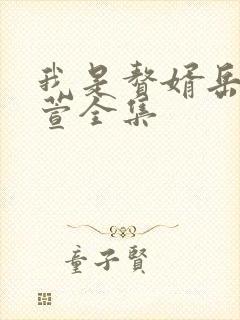 我是赘婿岳
萱全集
童子賢